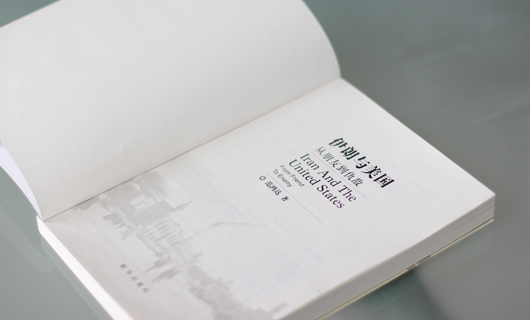 伊朗与美国
从朋友到仇敌
Iran And The
United States
From Friend
To Enemy
著